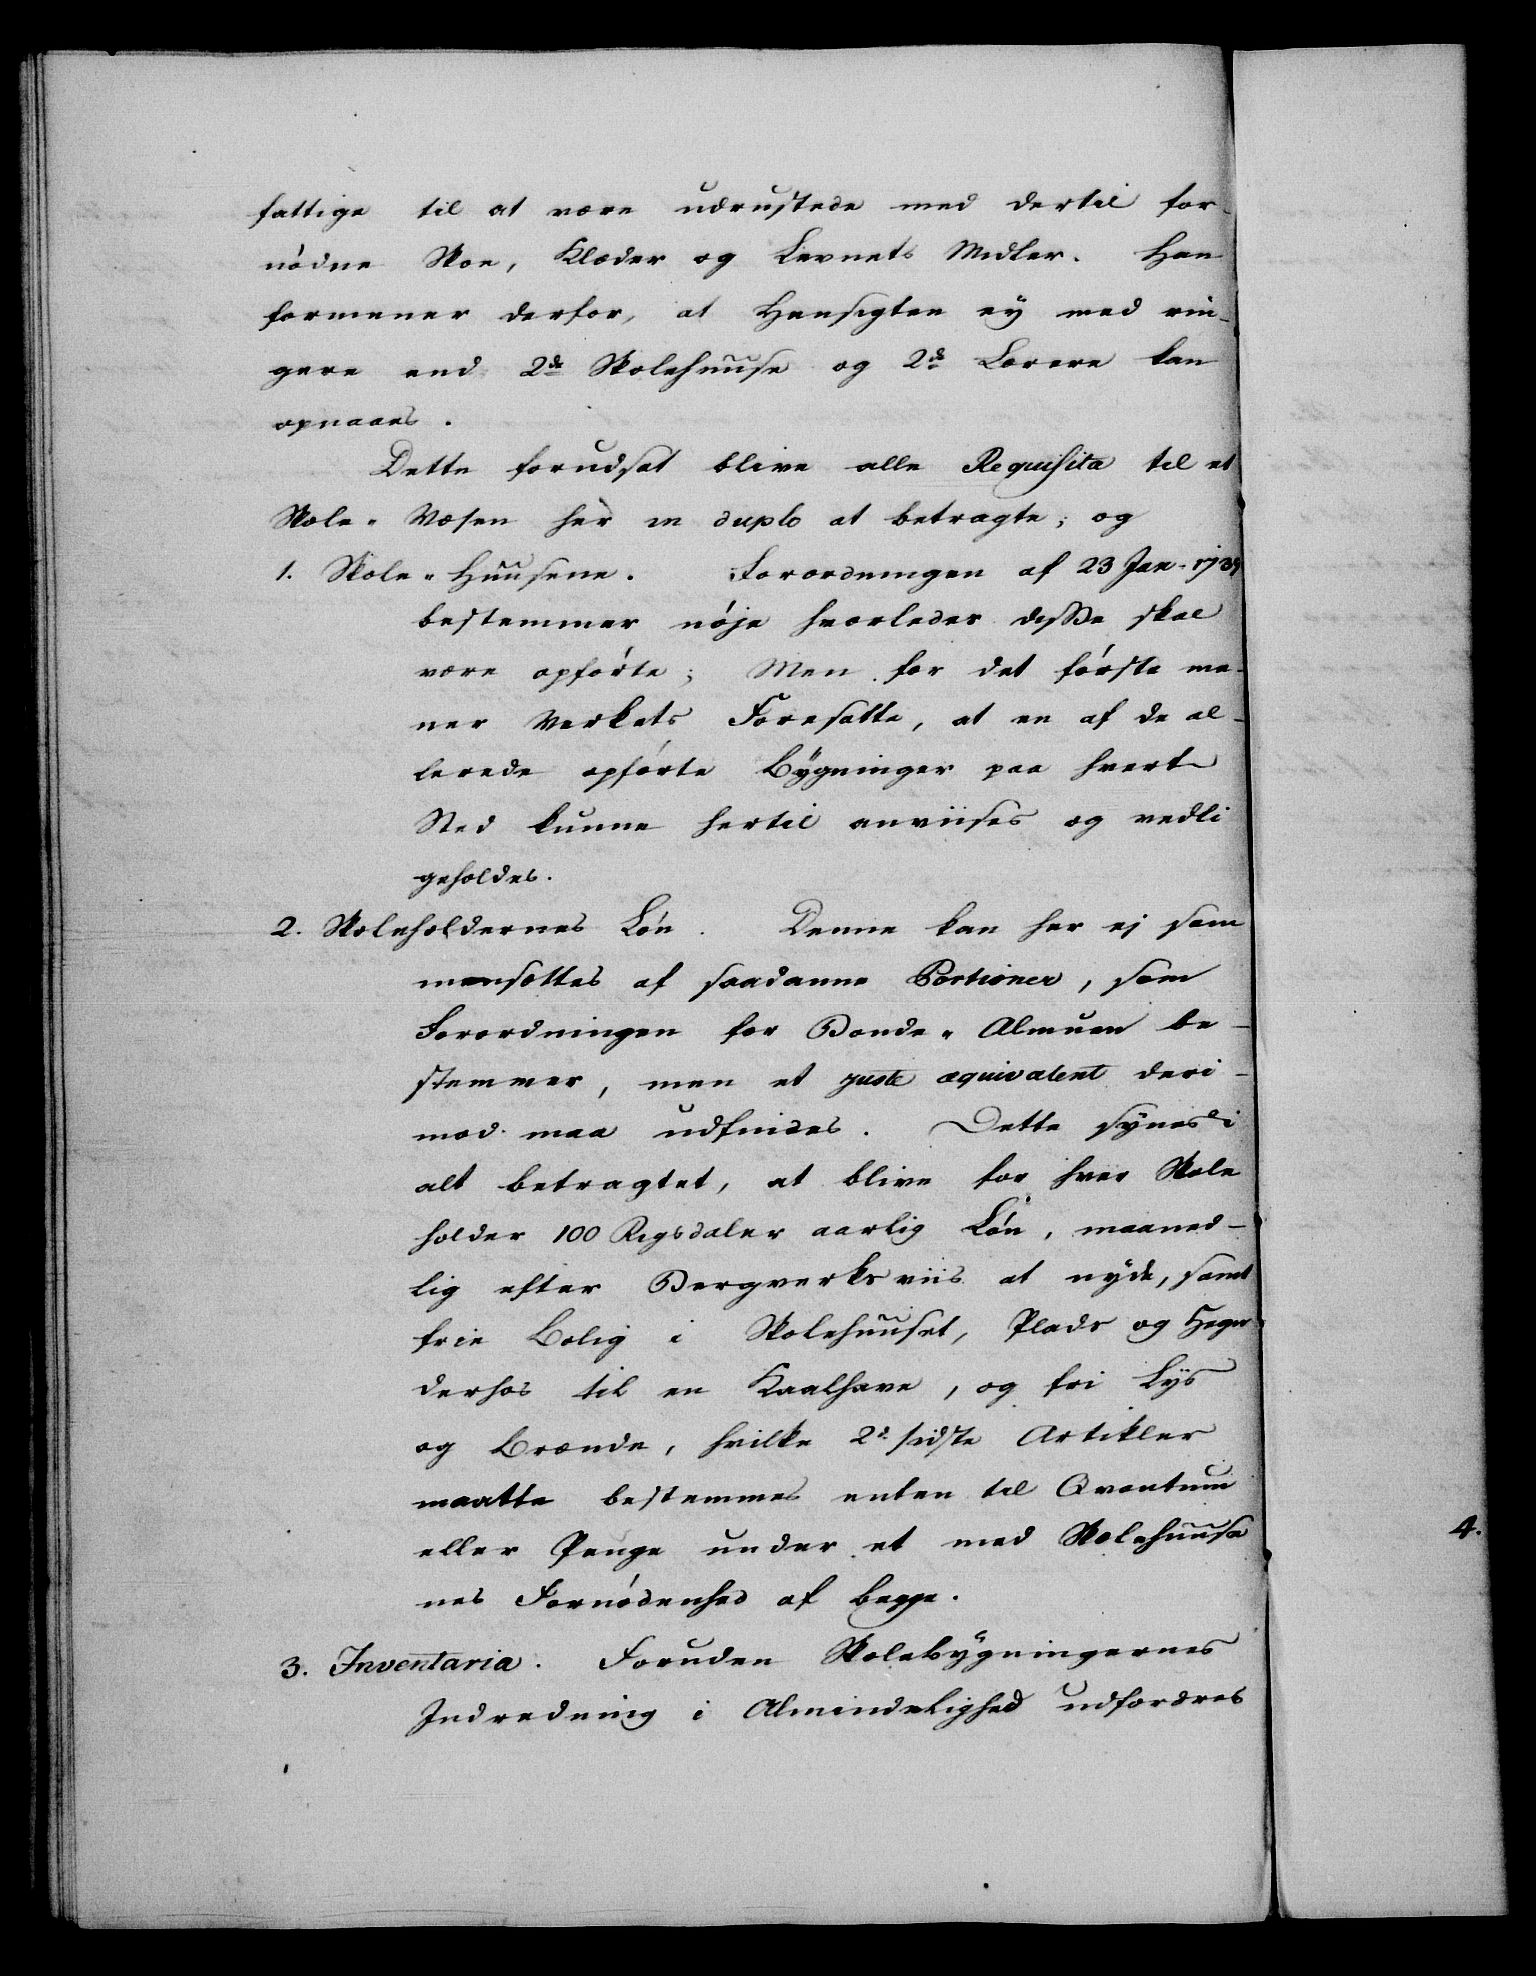 fattige til at være udrustede med dertil for-
nódne Skoe, Klæder og Levnets Midler. Han
formener derfor, at Hensigten ey med rin-
gere end 2de Skolehuuse og 2de Lærere kan
opnaaes.
Dette forudsat blive alle Requisita til et
Skole-Væsen her in duplo at betragte; og
1. Skole-Huusene. Forordningen af 23 Jan. 1739
bestemmer nóje hvorledes disse skal
være opfórte; Men for det fórste me-
ner Verkets Foresatte, at en af de al-
lerede opfórte Bÿgninger paa hvert
Sted kunne hertil anviises og vedli
geholdes.
2. Skoleholdernes Lón. Denne kan her ej sam
mensættes af saadanne Portioner, som
Forordningen for Bonde-Almuen be-
stemmer, men et juste æquivalent deri-
mod maa udfindes. Dette sÿnes i
alt betragtet, at blive for hver Skole
holder 100 Rigsdaler aarlig Lón, maaned-
lig efter Bergverks viis at nÿde, samt
frie Bolig i Skolehuuset, Plads og Hegn
derhos til en Kaalhave, og fri Lÿs
og Brænde, hvilke 2de sidste Artikler
maatte bestemmes enten til Qvantum
eller Penge under et med Skolehuuse
nes Fornódenhed af begge.
3. Inventaria. Foruden Skolebÿgningernes
Indredning i Almindelighed udfordres
4.